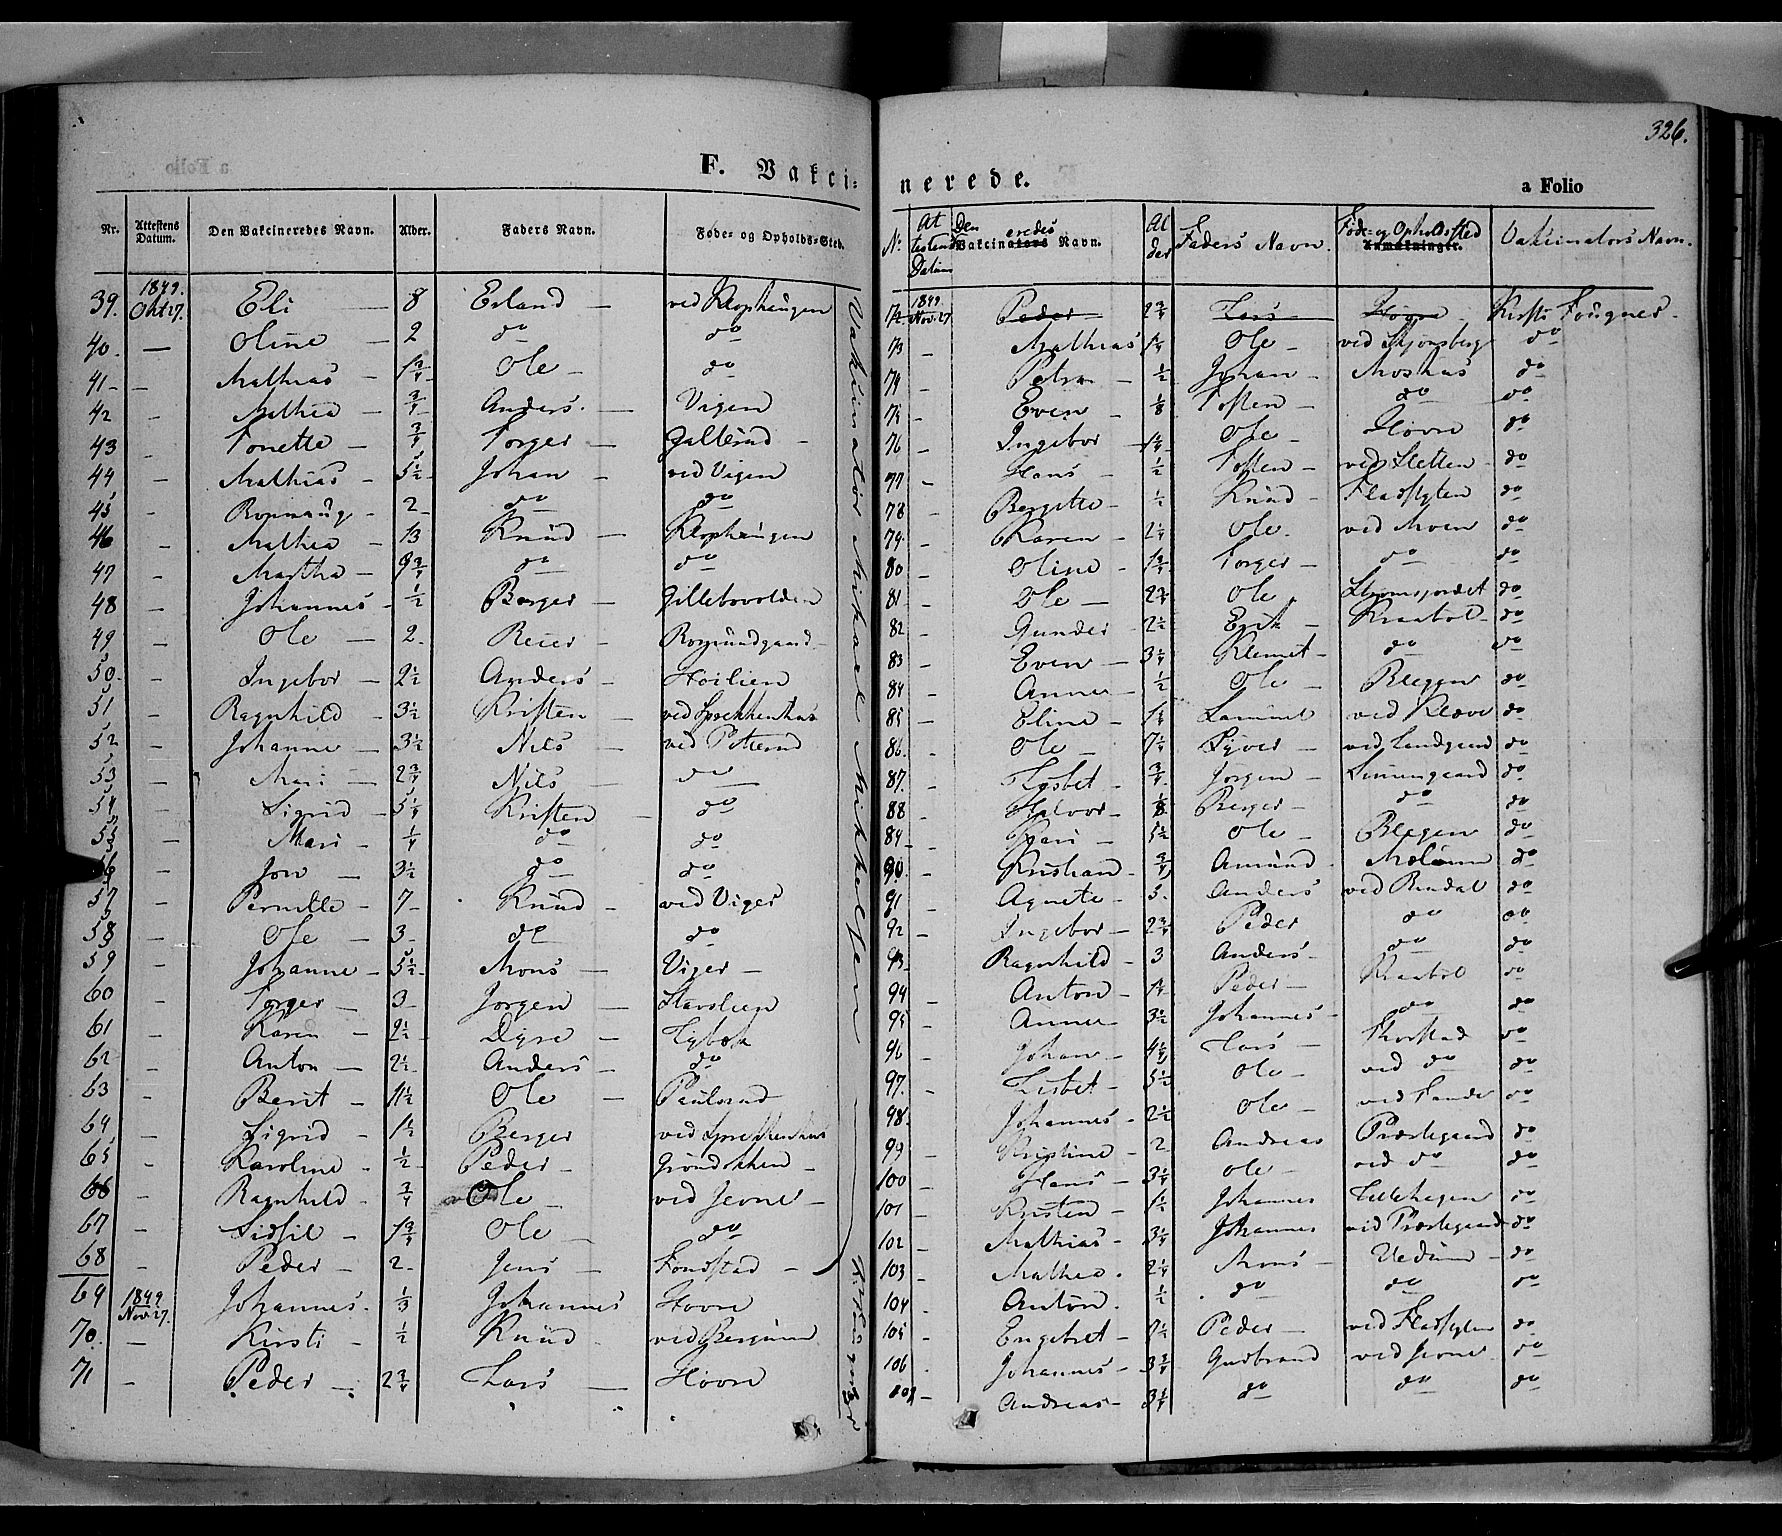 326.
F. Vakci-
Nr. Attestens Datum. Den Vakcineredes Navn. Alder. Faders Navn. Føde- og Opholds-Sted.
39. 1849. Okt 27. Eli — 8 Erland — ved Klophaugen
40. — Oline — 2 do do
41 — Mathias — 1 3/4 Ole — do
42 — Mathea — 3/4 Anders — Vigen
43 — Tonette — 3/4 Torger — Gallerud —
44 — Mathias — 5 1/2 Johan — ved Vigen
45 — Ronnaug — 2 — do do
46 — Mathea — 13 Knud — Klophaugen
47 — Martha — 9 3/4 do do
48 — Johannes — 1/2 Berger — Gillebovolden
49 — Ole — 2 — Reier — Rosmundgaard —
50. — Ingebor — 2 1/2 Anders — Hoilien
51 — Ragnhild — 3 1/2 Kristen — ved Sprekkenhus
52 — Johanne — 3 1/2 Nils — ved
53 — Mari — 2 3/4 Nils — do
54 — Sigrid — 5 1/4 Kristen — do
55 — Mari — 1/4 do do
56 — Jon — 3 1/2 do do
57 — Pernille — 7 — Knud — ved Viger
58 — Ole — 3 — do do
59 — Johanne — 5 1/2 Mons — Viger —
60 — Torger — 3 — Jorgen — Stavslien
61 — Karen — 2 1/2 Dyre —
62 — Anton — 2 1/2 Anders — do
63 — Berit — 11 1/2 Ole — Paulsrud
64 — Sigrid — 1 1/2 Berger ved Sprekkenhus
65 — Karoline — 1/2 Peder — Grøndokken —
66 — Ragnhild — 3/4 Ole — ved Jevne —
67 — Sidsil — 1 3/4 Ole — do
68 — Peder — 2 — Jens — Fonstad —
69 1849 Nov. 27. Johannes. 1/3 Johannes Hovre
70. — Kirsti — 1/2 Knud — ved
71 — Peder — 2 3/4 Lars — Hovre
Vakcinator Mikael Mikkelsen
nerede. a Folio
No. Attestens Datum Den Vakcineredes Navn. Alder Faders Navn. Føde- og Opholdssted Vakcinators Navn.
72 1849 Nov. 27 Peder 2 3/4 Lars — Hovre — Kirsti Fougner.
73 — Mathias 1 1/4 Ole — ved Skjonsberg do
74 — Petra — 1/2 Johan — Moshus do
75 — Even — 1/8 Tosten — do do
76 — Ingebor — 1 1/4 Ole — Hovre do
77 — Hans — 1/2 Tosten — ved Sletten — do
78 — Bergitte — 1/2 Knud — Fladstyten do
79. — Karen — 2 1/4 Ole. ved Moen do
80 — Oline — 1 3/4 Torger — do do
81 — Ole — 2 3/4 Ole. Stromsjordet do
82. — Gunder — 2 1/2 Erik — Kraabøl — do
83 — Even — 3 1/4 Klemet — do do
84 — Anne — 1/2 Ole — Bleggen do
85 — Eline — 1 1/4 Lammet ved Kleve do
86. — Ole — 7 1/4 Syver — ved Sandgaard do
87. — Lisbet — 3/4 Jorgen — do
88 Halvor — 1/8 Berger — do do
89 — Kari — 5 1/2 Ole — Bleggen do
90. — Kristian — 3/4 Amund — do
91 — Agnete — 5. Anders ved Rindal do
92 — Ingebor — 2 3/4 Peder do do
93 — Ragnhild — 3 Anders — do do
94 — Anton — 1 1/4 Peder — Kraabol do
95 — Anne — 3 Johannes — do do
96 — Johan — 4 1/2 Lars — Skorstad do
97. — Lisbet — 5 1/2 Ole — ved do do
98. — Johannes — 2 1/2 Ole — ved do
99 — Kristine — 2 Andreas Præstegaard do
100 — Hans — 3 1/4 Ole — ved do do
101 — Kristen — 1 1/2 Johannes Lillehagen do
102 — Mathias — 3 1/4 Johannes ved Præstegaard do
103 — Mathea. 2 1/4 Mons — Uedum — do
104 . Anton. 1/2 do do do
105 — Engebret — 2 1/2 Peder — ved Fladstyten do
106 . Johannes — 3 3/4 Gudbrand ved Jevne do
107 — Andreas — 3 1/4 do do do